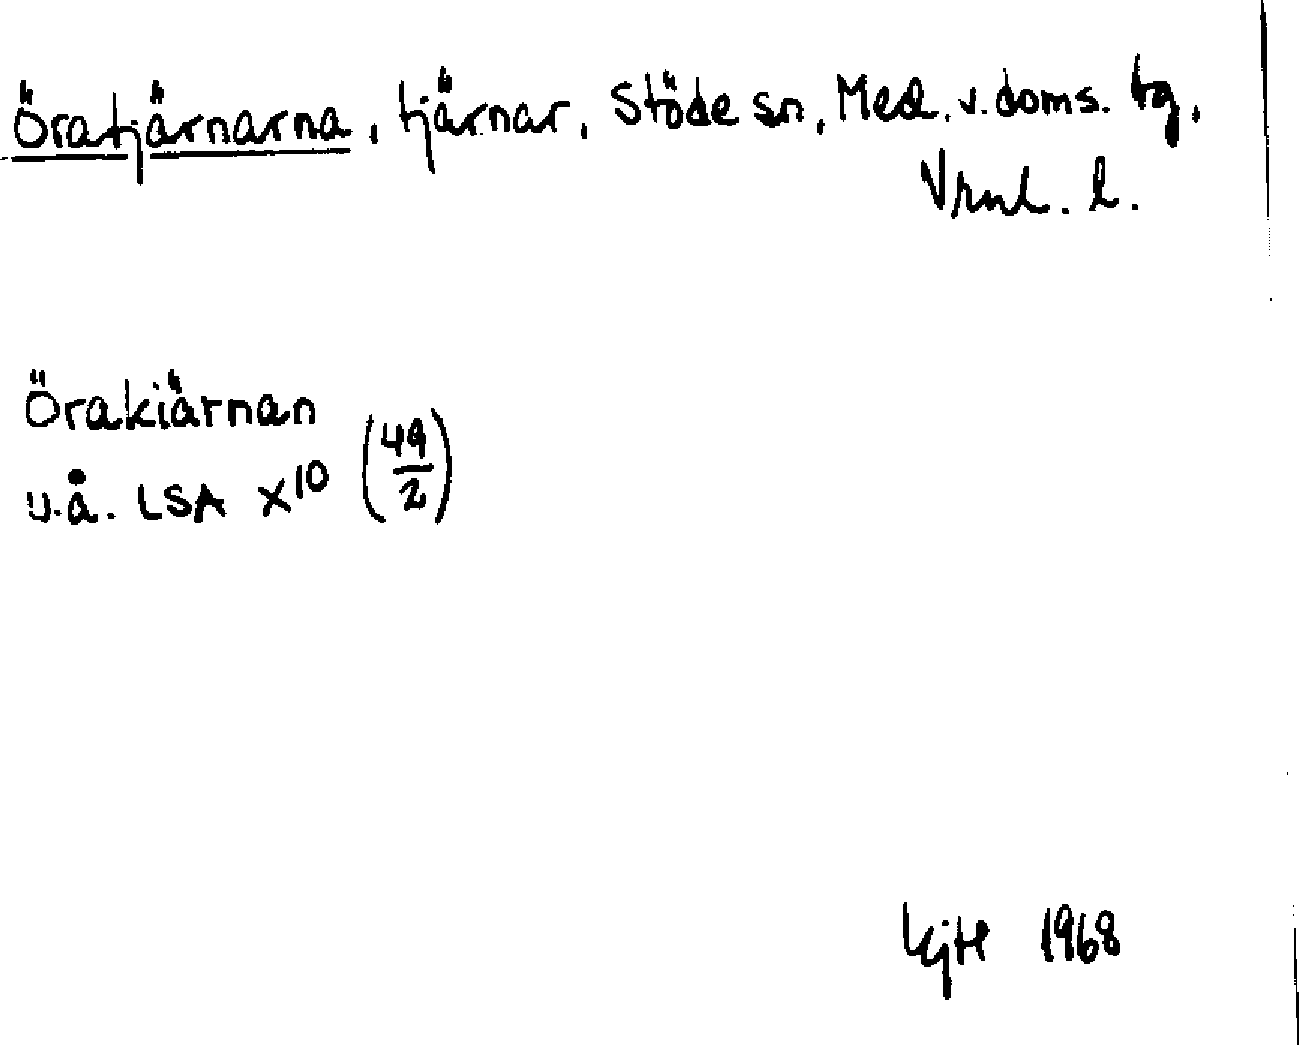 Öratjärnarna, tjärnar, Stöde sn, Med. v. doms. tg,
Vrnl. l.
Örakiärnan
u.å. LSA X10 (49/2)
KjH 1968